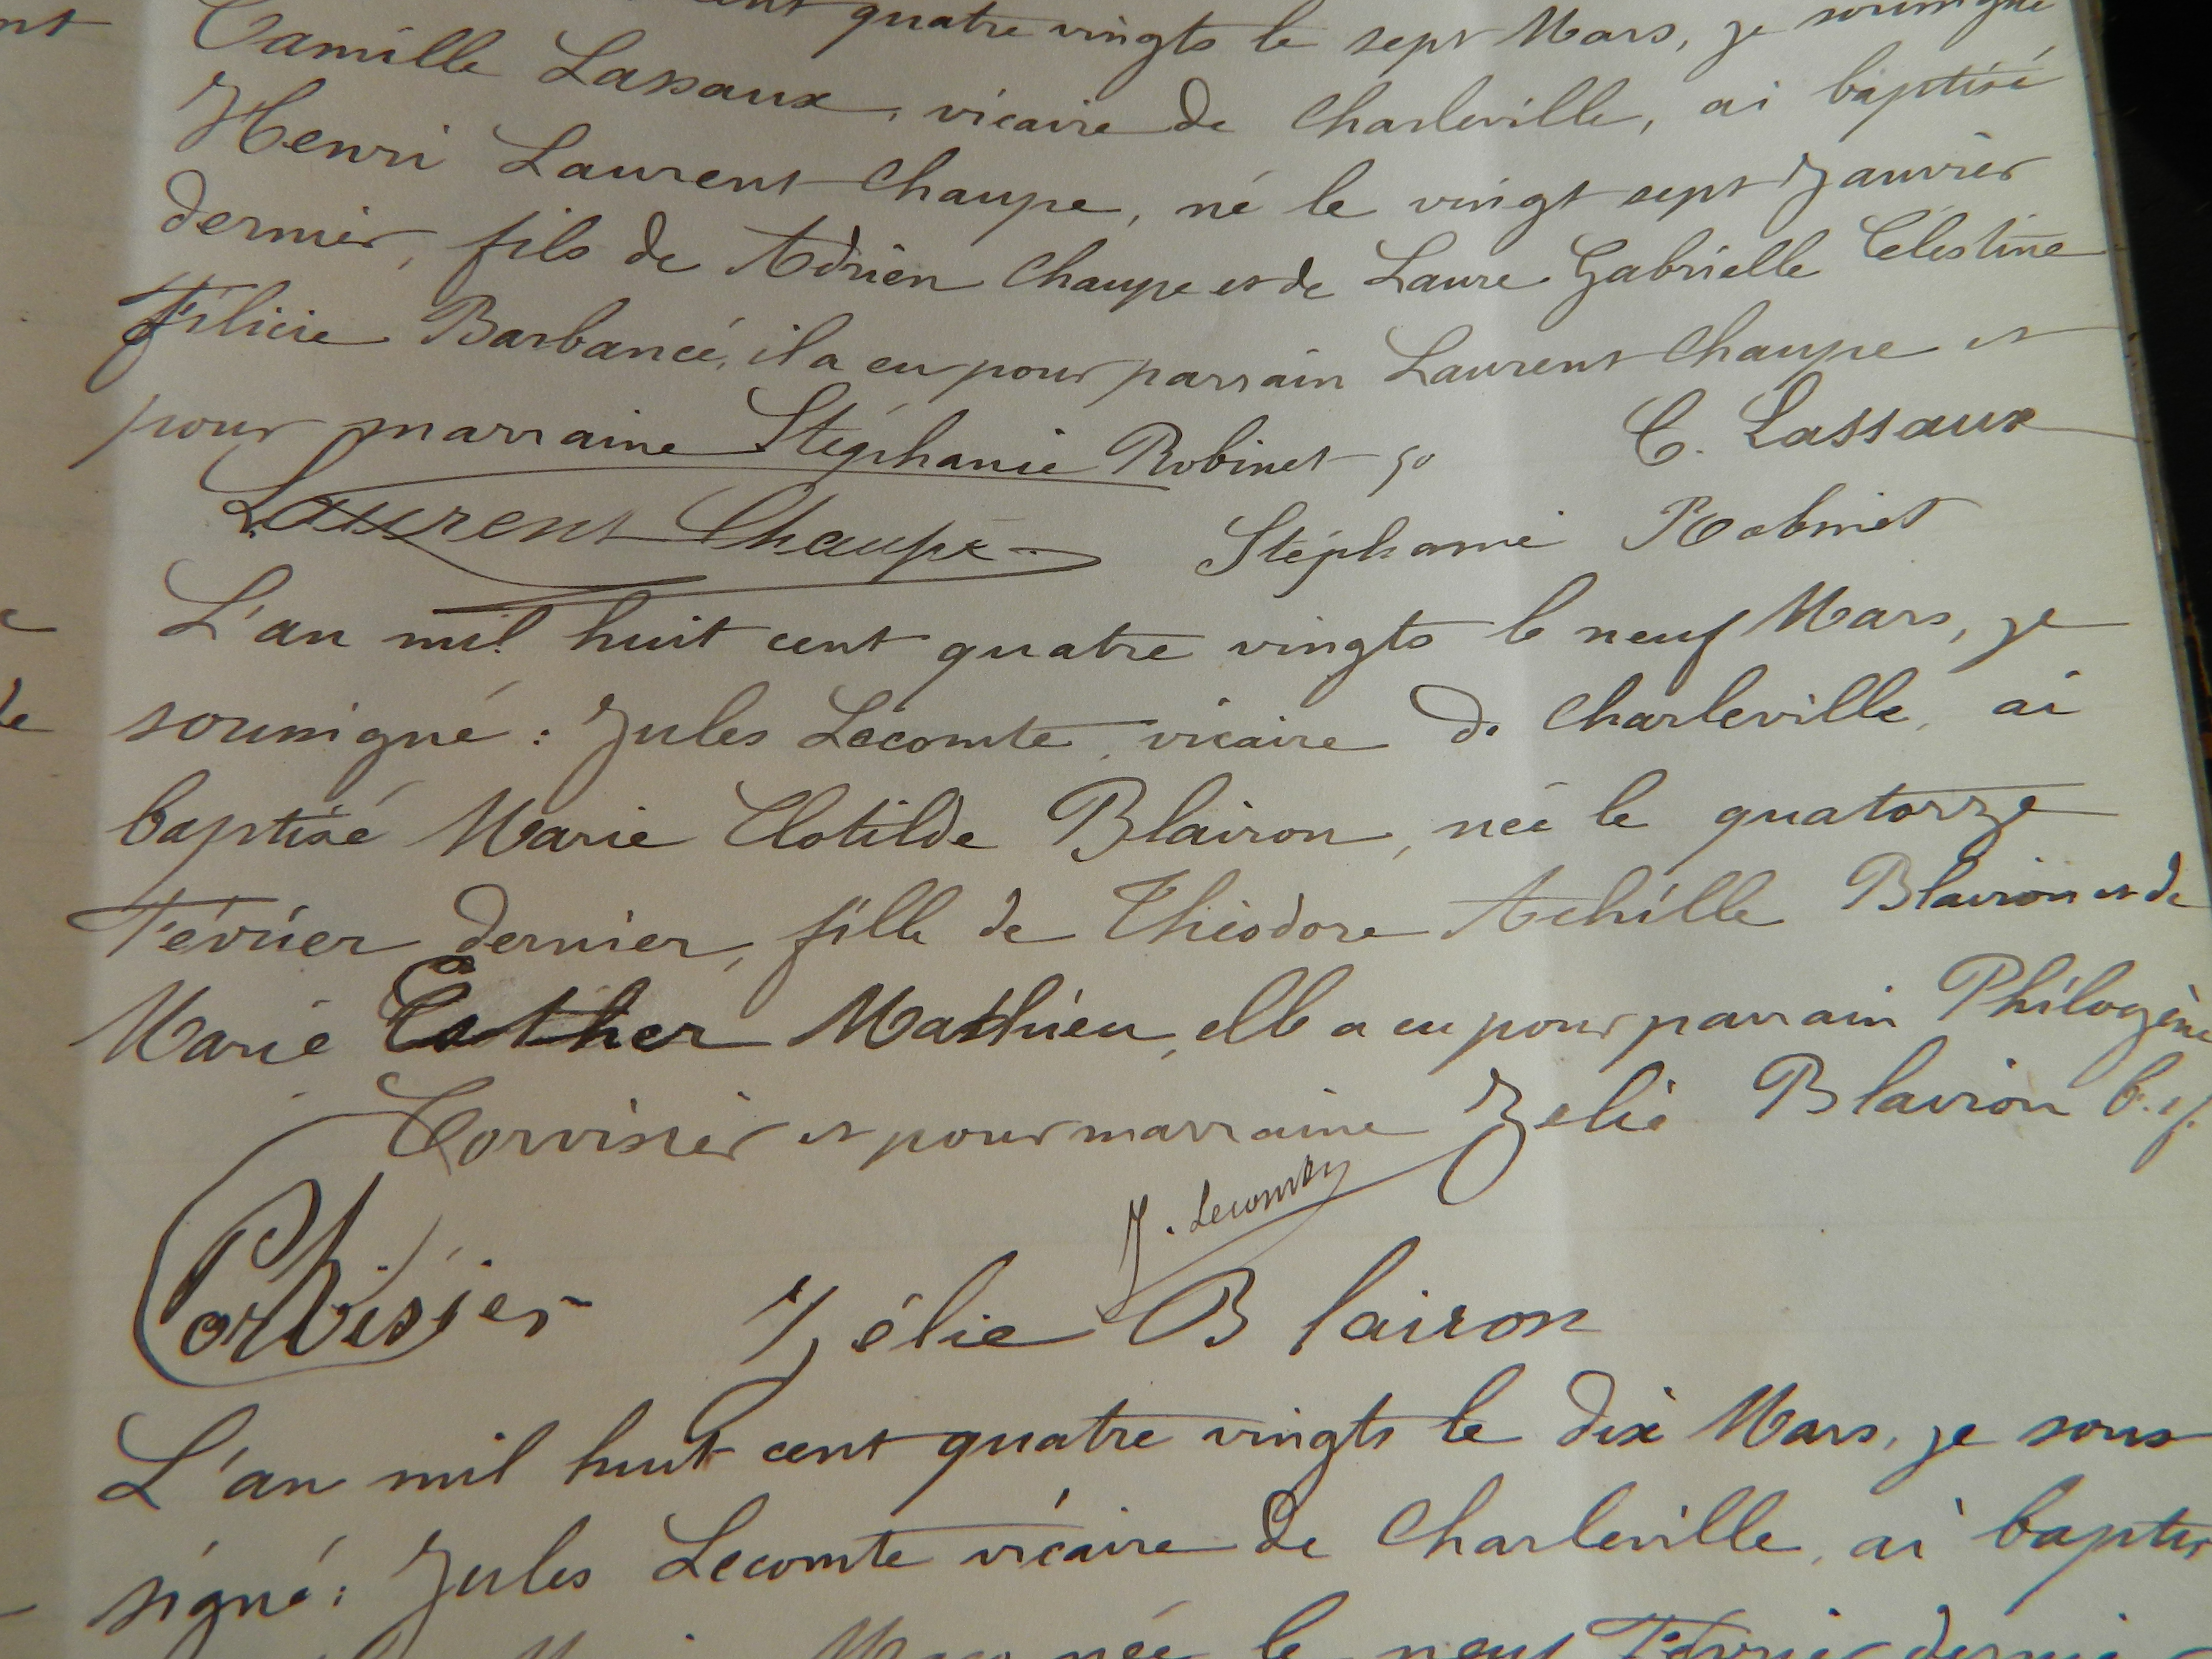 nt
cent quatre vingts le sept Mars, je soussigné
Camille Lassaux, vicaire de Charleville, ai baptisé
Henri Laurent Chaupe, né le vingt sept Janvier
dernier, fils de Adrien Chaupe et de Laure Gabrielle Célestine
Félicie Barbancé, il a eu pour parrain Laurent Chaupe et
pour marraine Stéphanie Robinet
C. Lassaux
Laurent Chaupe
Stéphanie Robinet
L'an mil huit cent quatre vingts le neuf Mars, je
soussigné : Jules Lecomte, vicaire de Charleville, ai
de
baptisé Marie Clotilde Blairon, née le quatorze
Février dernier, fille de Théodore Achille Blairon et de
Marie Esther Mathieu, elle a eu pour parrain Philogène
Corvisier et pour marraine Zélie Blairon
J. Lecomte
Corvisier
Zélie Blairon
L'an mil huit cent quatre vingts le dix Mars, je sous
signé : Jules Lecomte vicaire de Charleville, ai baptisé
née le neuf Février dernier